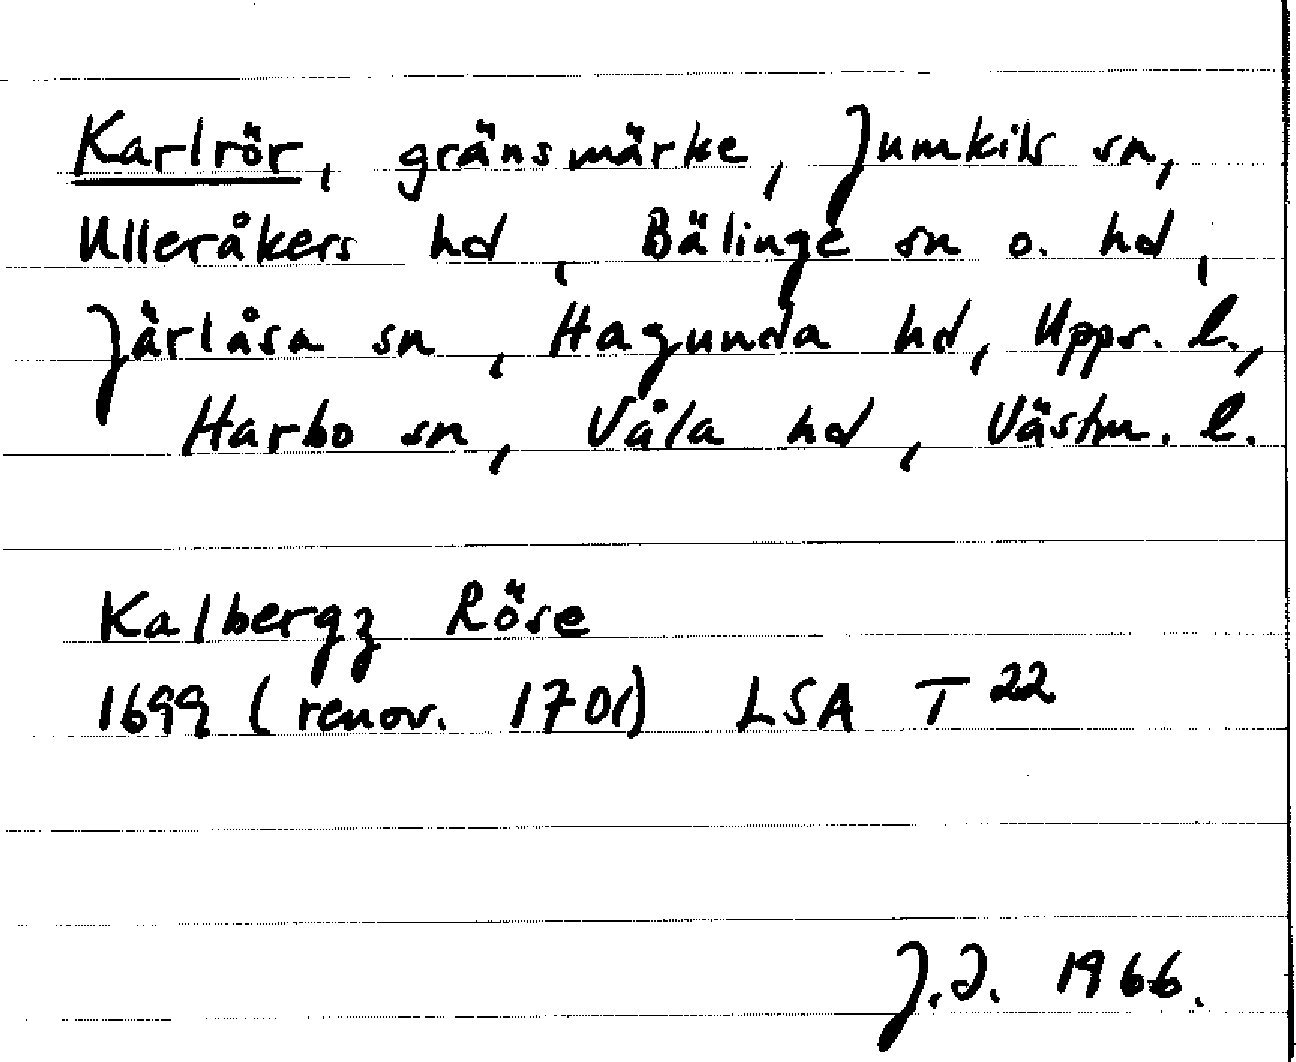 Karlrör, gränsmärke, Jumkils sn,
Ulleråkers hd, Bälinge sn o. hd,
Järlåsa sn, Hagunda hd, Upps. l.,
Harbo sn, Våla hd, Västm. l.
Kalbergz Röse
1699 (renov. 1701) LSA T 22
J.I. 1966.